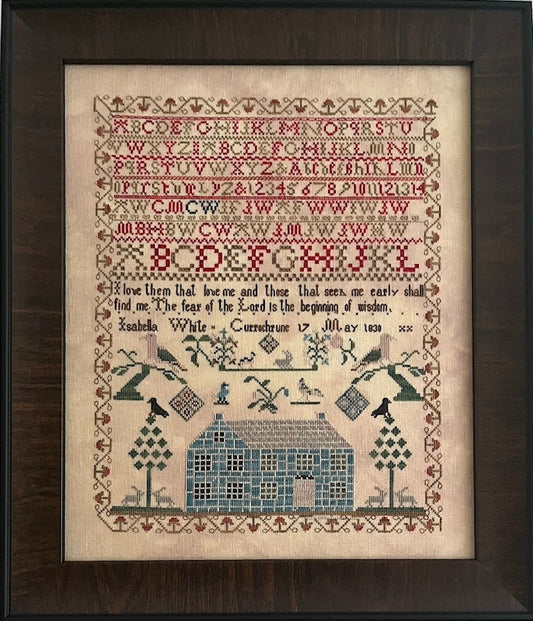 ABCDEFGHIJKLMNOPQRSTU
VWXYZ ABCDEFGHIJKLMNO
PQRSTUVWXYZ&
&12345 6 7 8 9 10 11 12 13 14
CM CW IW IW WW IW
MBH BW CW JW JW IW
ABCDEFGHIJKL
I love them that love me and those that seek me early shall
find me. The fear of the Lord is the beginning of wisdom. . . .
Isabella White - Currochrune 17 May 1830 xx